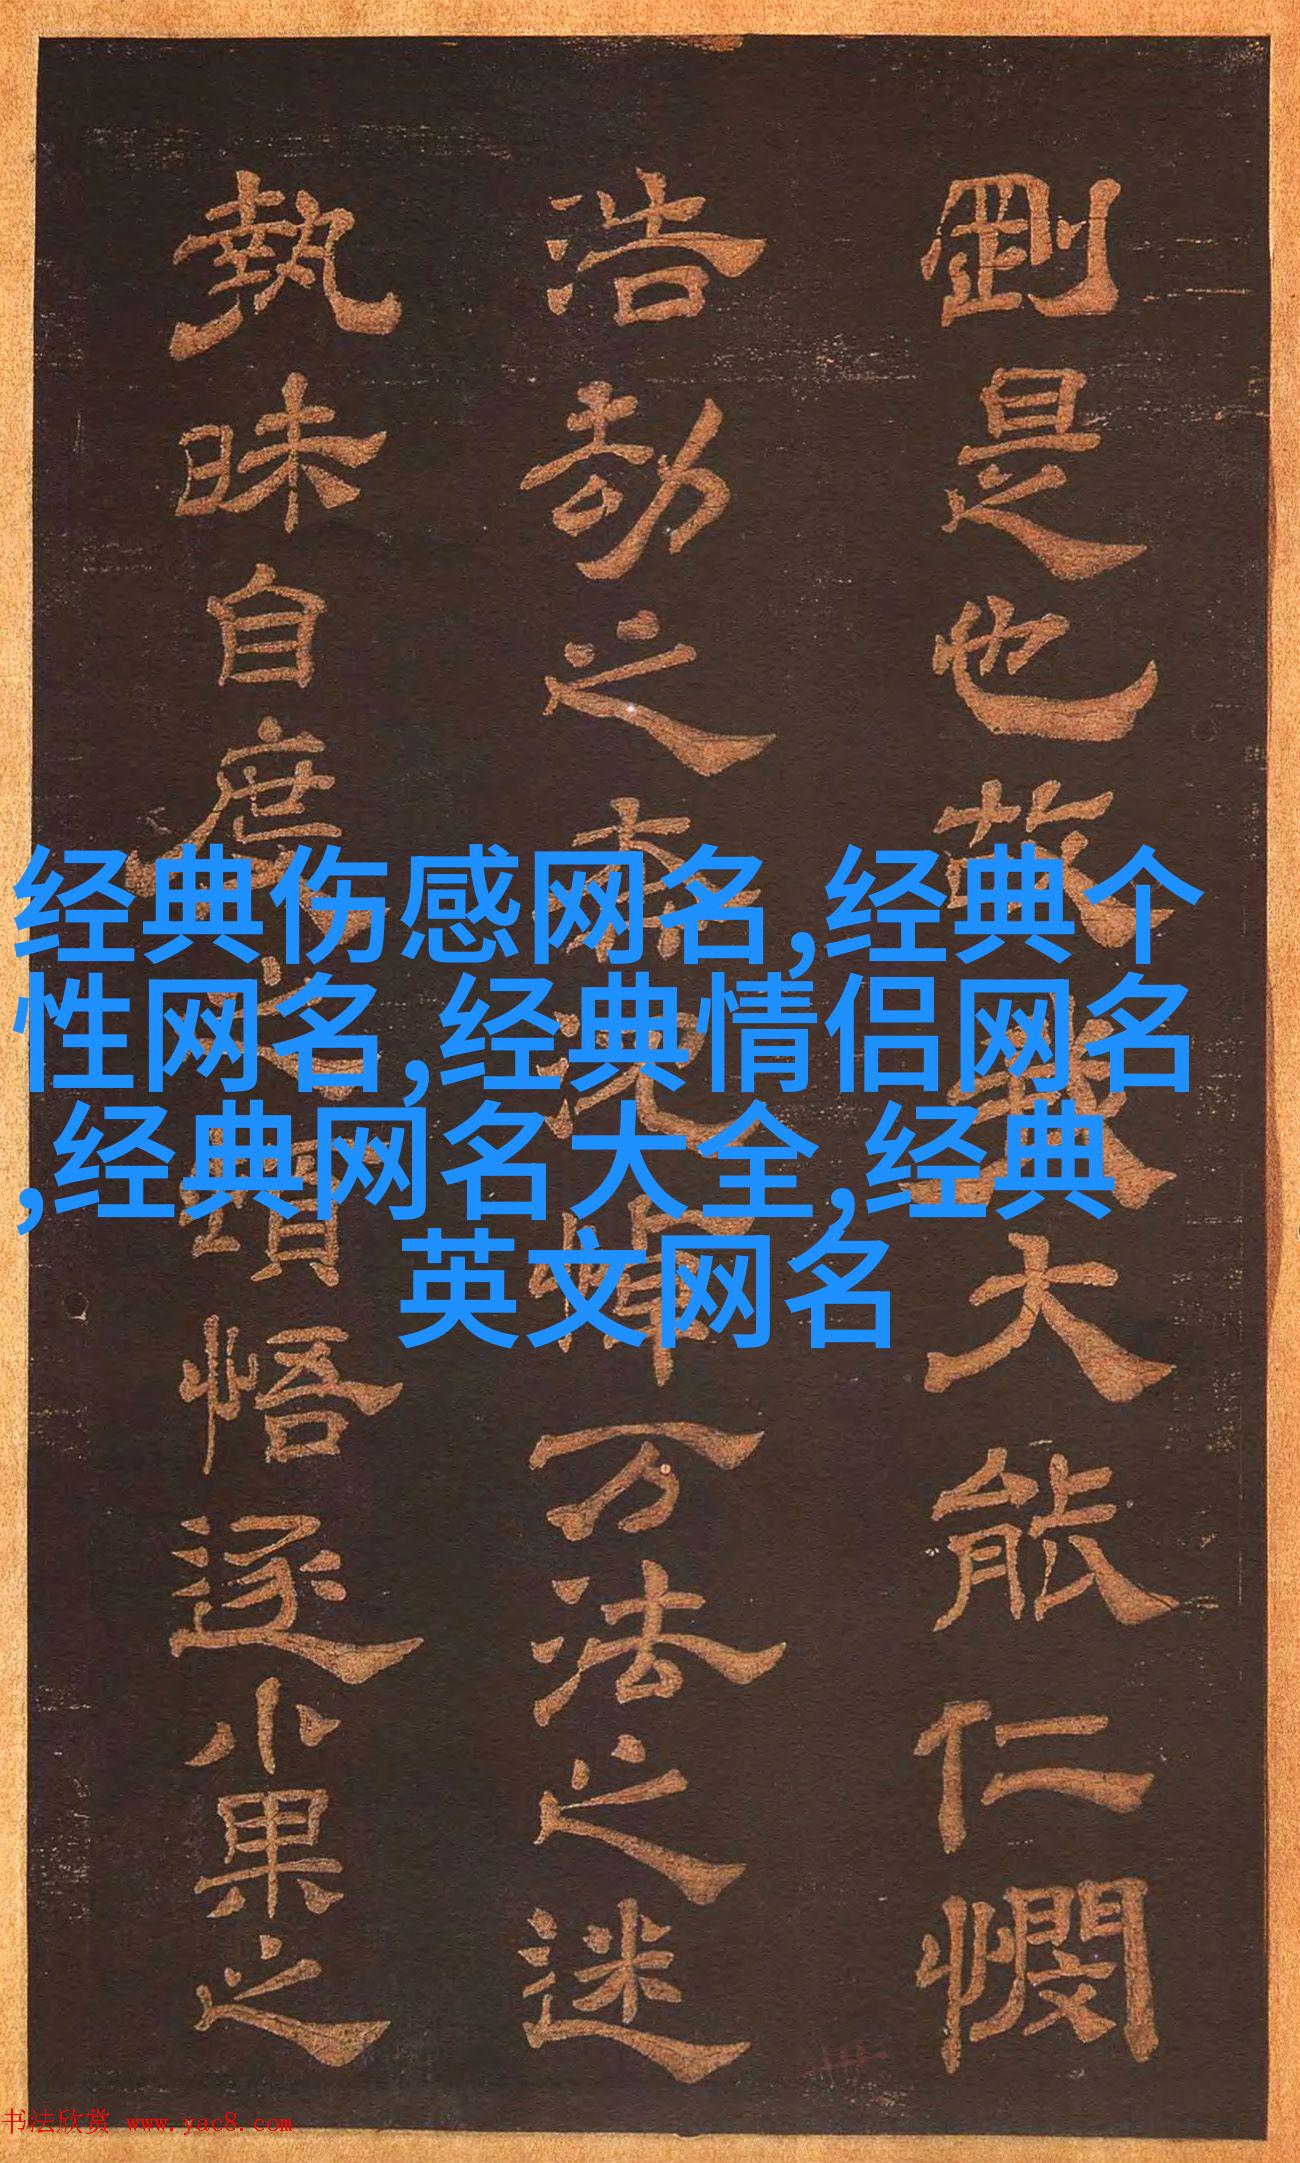 经典伤感网名,经典个
性网名,经典情侣网名
,经典网名大全,经典
英文网名
剛是也故我大能仁憫
浩劫之沉悼万法之迷
執昧自之悟逐小果之
书法欣赏 www.yac8.com